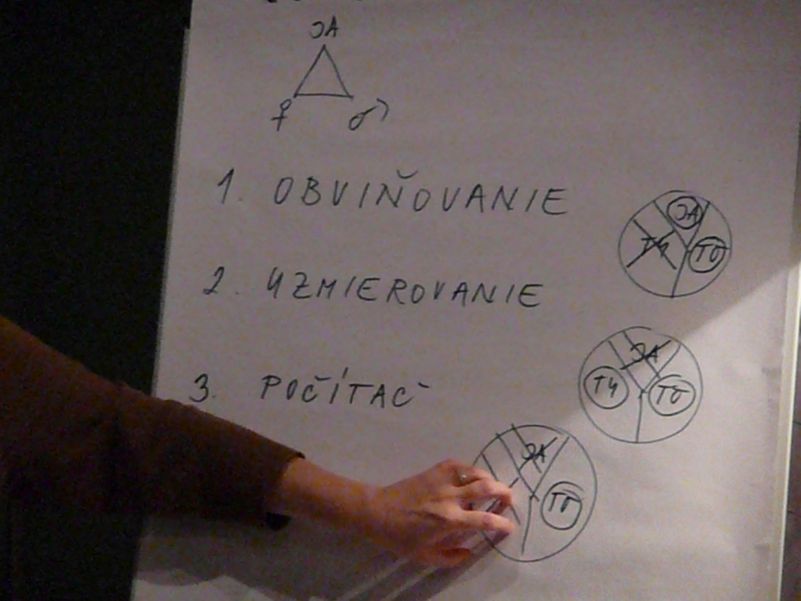 JA
♀ ♂
1. OBVIŇOVANIE
JA
TY TO
2. UZMIEROVANIE
JA
TY TO
3. POČÍTAČ
JA
TO